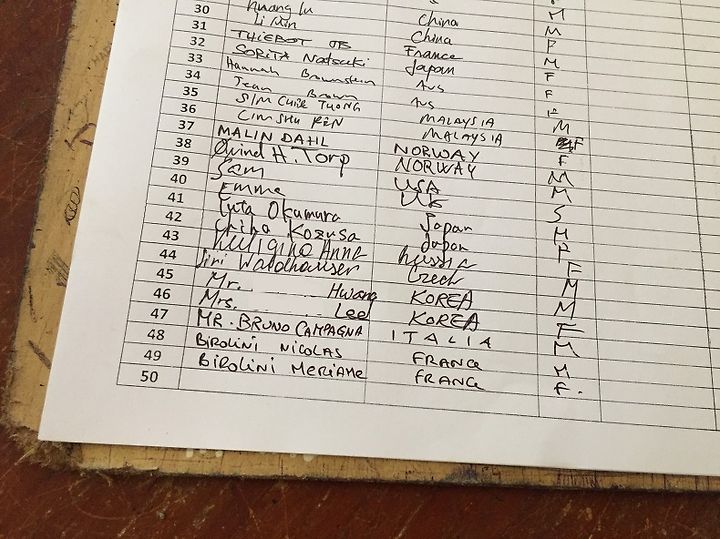 Huang Lu China M
30 Li Min China F
31 THIEBOT France M
32 SORITA Natsuki Japan F
33 Hannah Aus F
34 Jean Aus F
35 SIM CHIK TUONG MALAYSIA M
36 LIM SHU REN MALAYSIA F
37 MALIN DAHL NORWAY F
38 Øvind H. Torp NORWAY M
39 Sam USA M
40 Emma UK S
41 Yuta Okumura Japan M
42 Chiba Kozusa Japan F
43 Anna Russia F
44 Jiri Waldhauser Czech M
45 Mr. Hwang KOREA M
46 Mrs. Lee KOREA F
47 MR. BRUNO CAMPAGNA ITALIA M
48 BIROLINI NICOLAS FRANCE M
49 BIROLINI MERIAME FRANCE F.
50